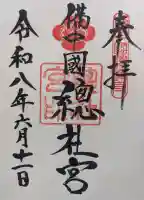 奉拝
備中國
總社宮
令和八年六月十一日